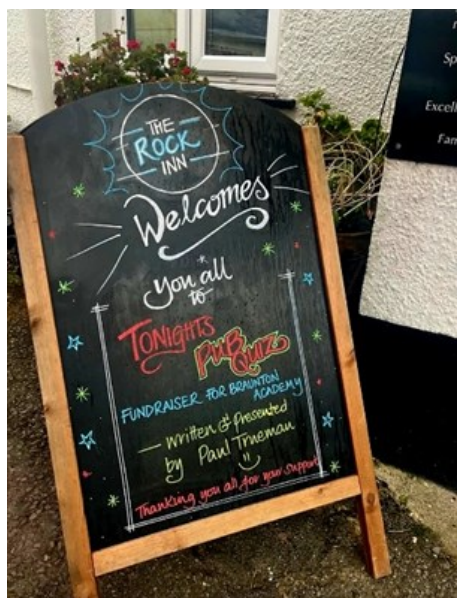 THE
ROCK
INN
Welcomes
you all
to
TONIGHTS
PUB
QUIZ
FUNDRAISER FOR BRAUNTON
ACADEMY
— Written & Presented
by Paul Trueman
Thanking you all for your support
Sp
Excell
Fam